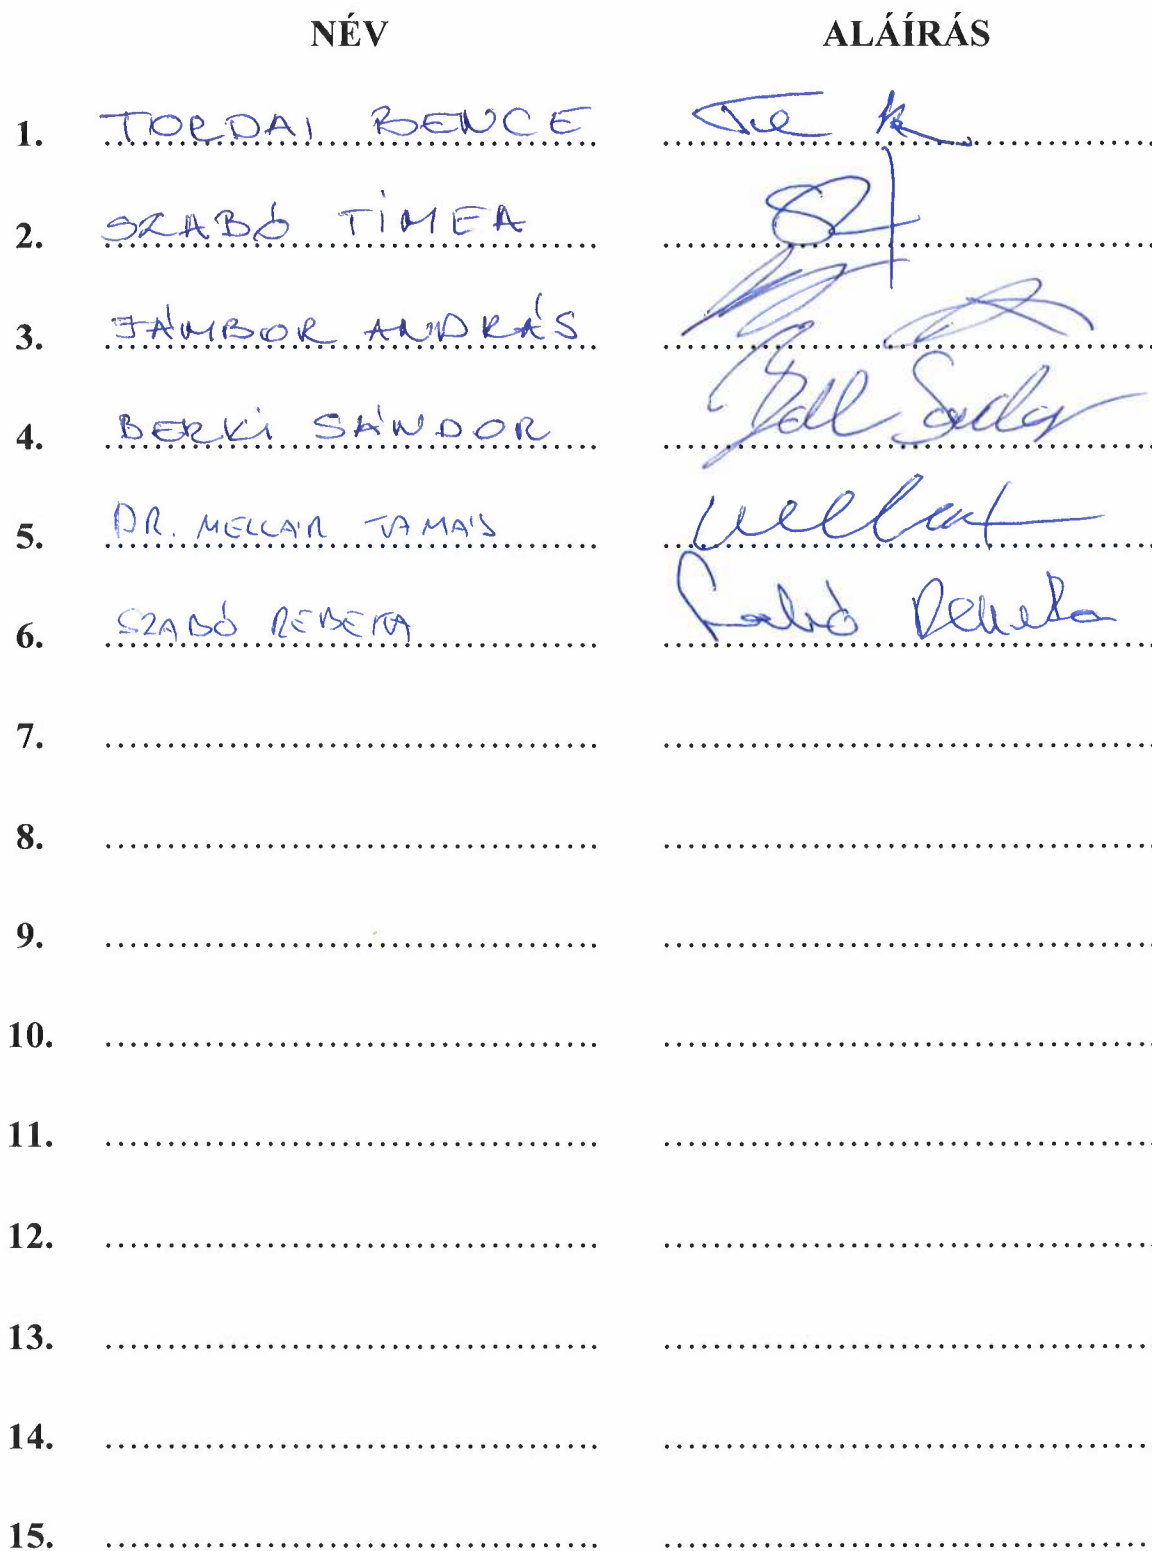 NÉV ALÁÍRÁS
1. TORDAI BENCE
2. SZABÓ TÍMEA
3. JÁMBOR ANDRÁS
4. BERKI SÁNDOR
5. DR. MELLÁR TAMÁS
6. SZABÓ REBEKA Szabó Rebeka
7.
8.
9.
10.
11.
12.
13.
14.
15.